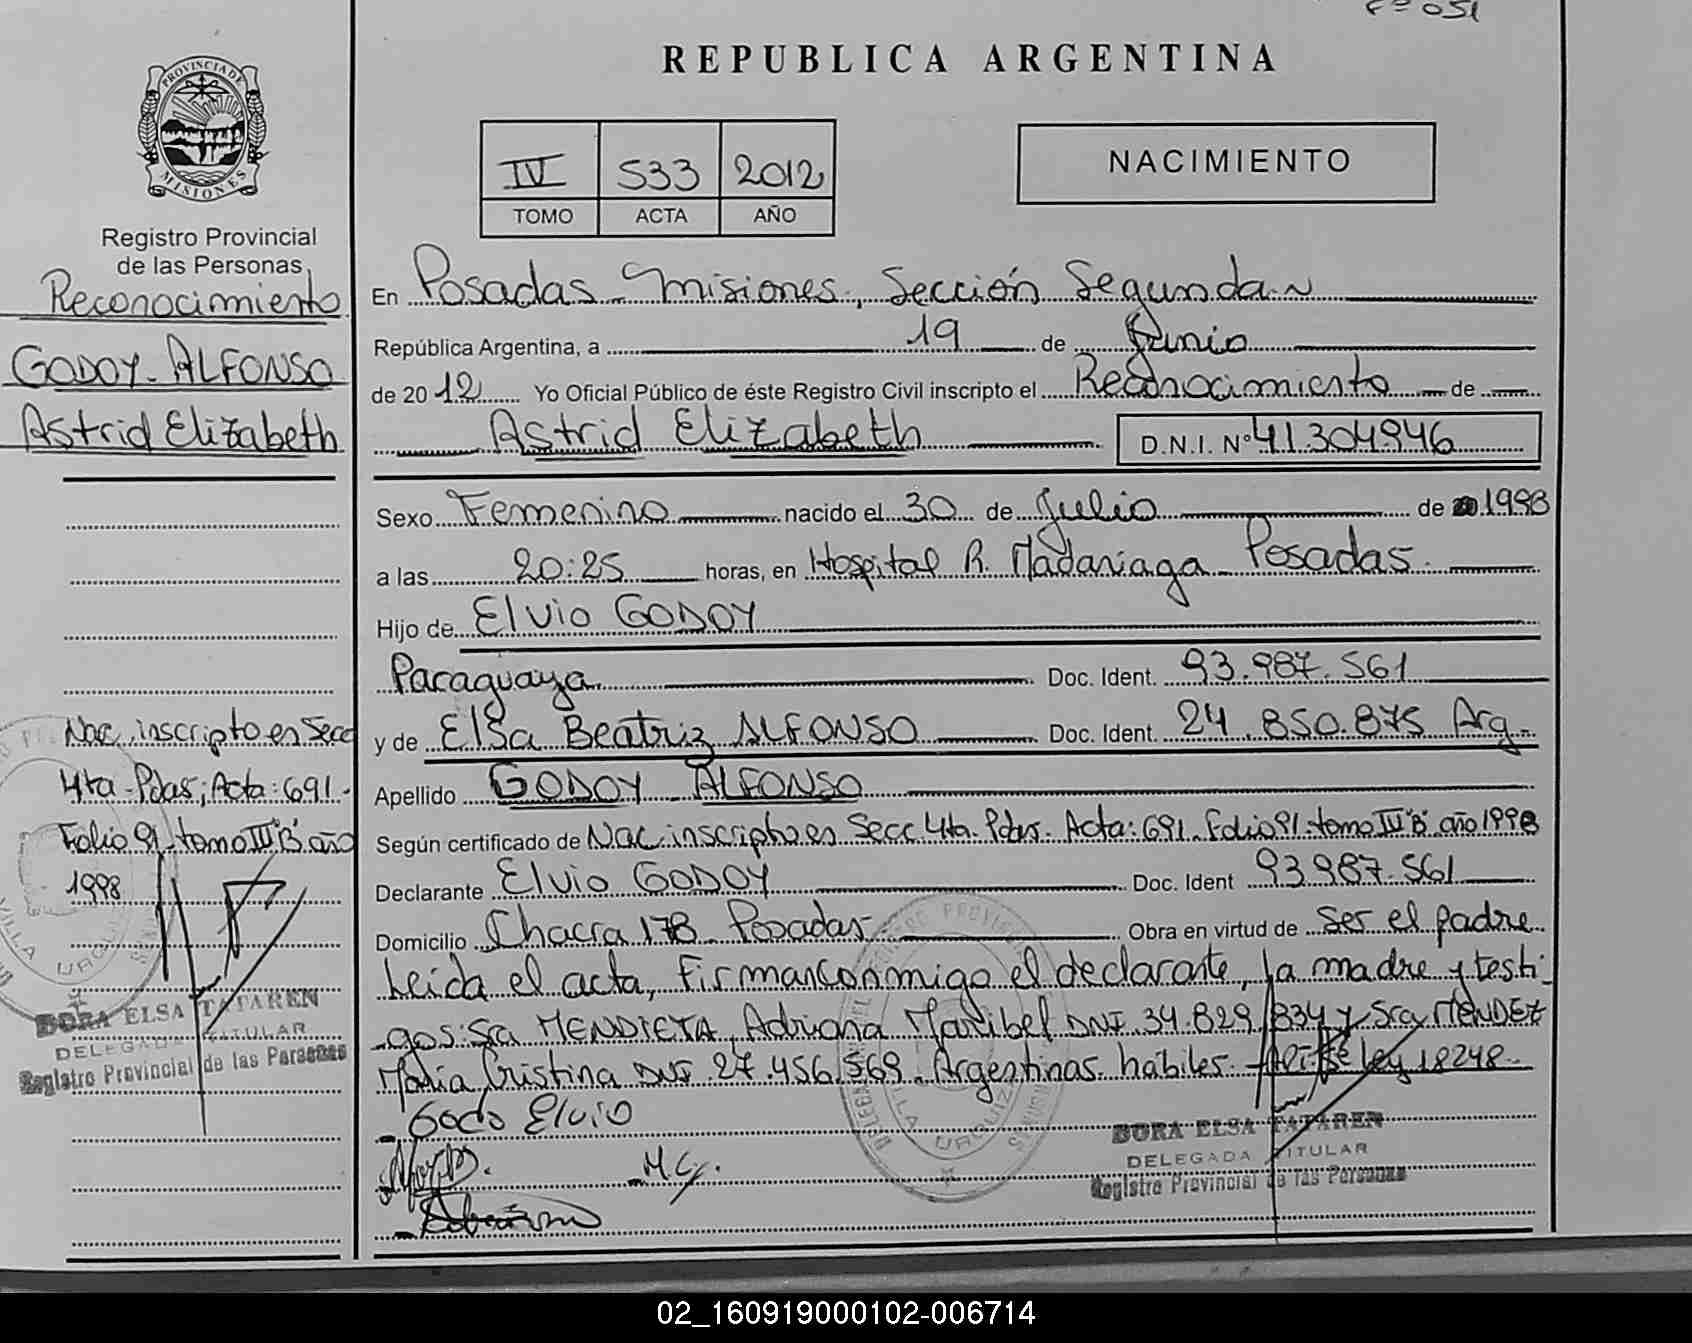 Fº 051
REPUBLICA ARGENTINA
PROVINCIA DE
MISIONES
IV 533 2012
TOMO ACTA AÑO
NACIMIENTO
Registro Provincial
de las Personas
Reconocimiento
GODOY - ALFONSO
Astrid Elizabeth
En Posadas - Misiones, Sección Segunda
República Argentina, a 19 de Junio
de 2012 Yo Oficial Público de éste Registro Civil inscripto el Reconocimiento de
Astrid Elizabeth D.N.I. Nº 41.304.946
Sexo Femenino nacido el 30 de Julio de 1998
a las 20:25 horas, en Hospital R. Madariaga - Posadas.
Hijo de Elvio GODOY
Paraguaya Doc. Ident. 93.987.561
y de Elsa Beatriz ALFONSO Doc. Ident. 24.850.875 Arg.
Apellido GODOY ALFONSO
Según certificado de Nac. inscripto en Secc 4ta. Pdas. Acta: 691. Folio 91. tomo III "B" año 1998
Declarante Elvio GODOY Doc. Ident 93987.561
Domicilio Chacra 178 - Posadas Obra en virtud de ser el padre.
Leída el acta, Firman conmigo el declarante, la madre y testi-
gos: Sra MENDIETA, Adriana Maribel DNI 34.829.834 y Sra MENDEZ
María Cristina DNI 27.456.569. Argentinas. hábiles. Ley 18248
Godo Elvio
M C
Nac. inscripto en Secc
4ta - Pdas; Acta: 691 -
Folio 91 - tomo III "B" año
1998
DORA ELSA TATAREN
DELEGADA TITULAR
Registro Provincial de las Personas
VILLA URQUIZA
DORA ELSA TATAREN
DELEGADA TITULAR
Registro Provincial de las Personas
02_160919000102-006714